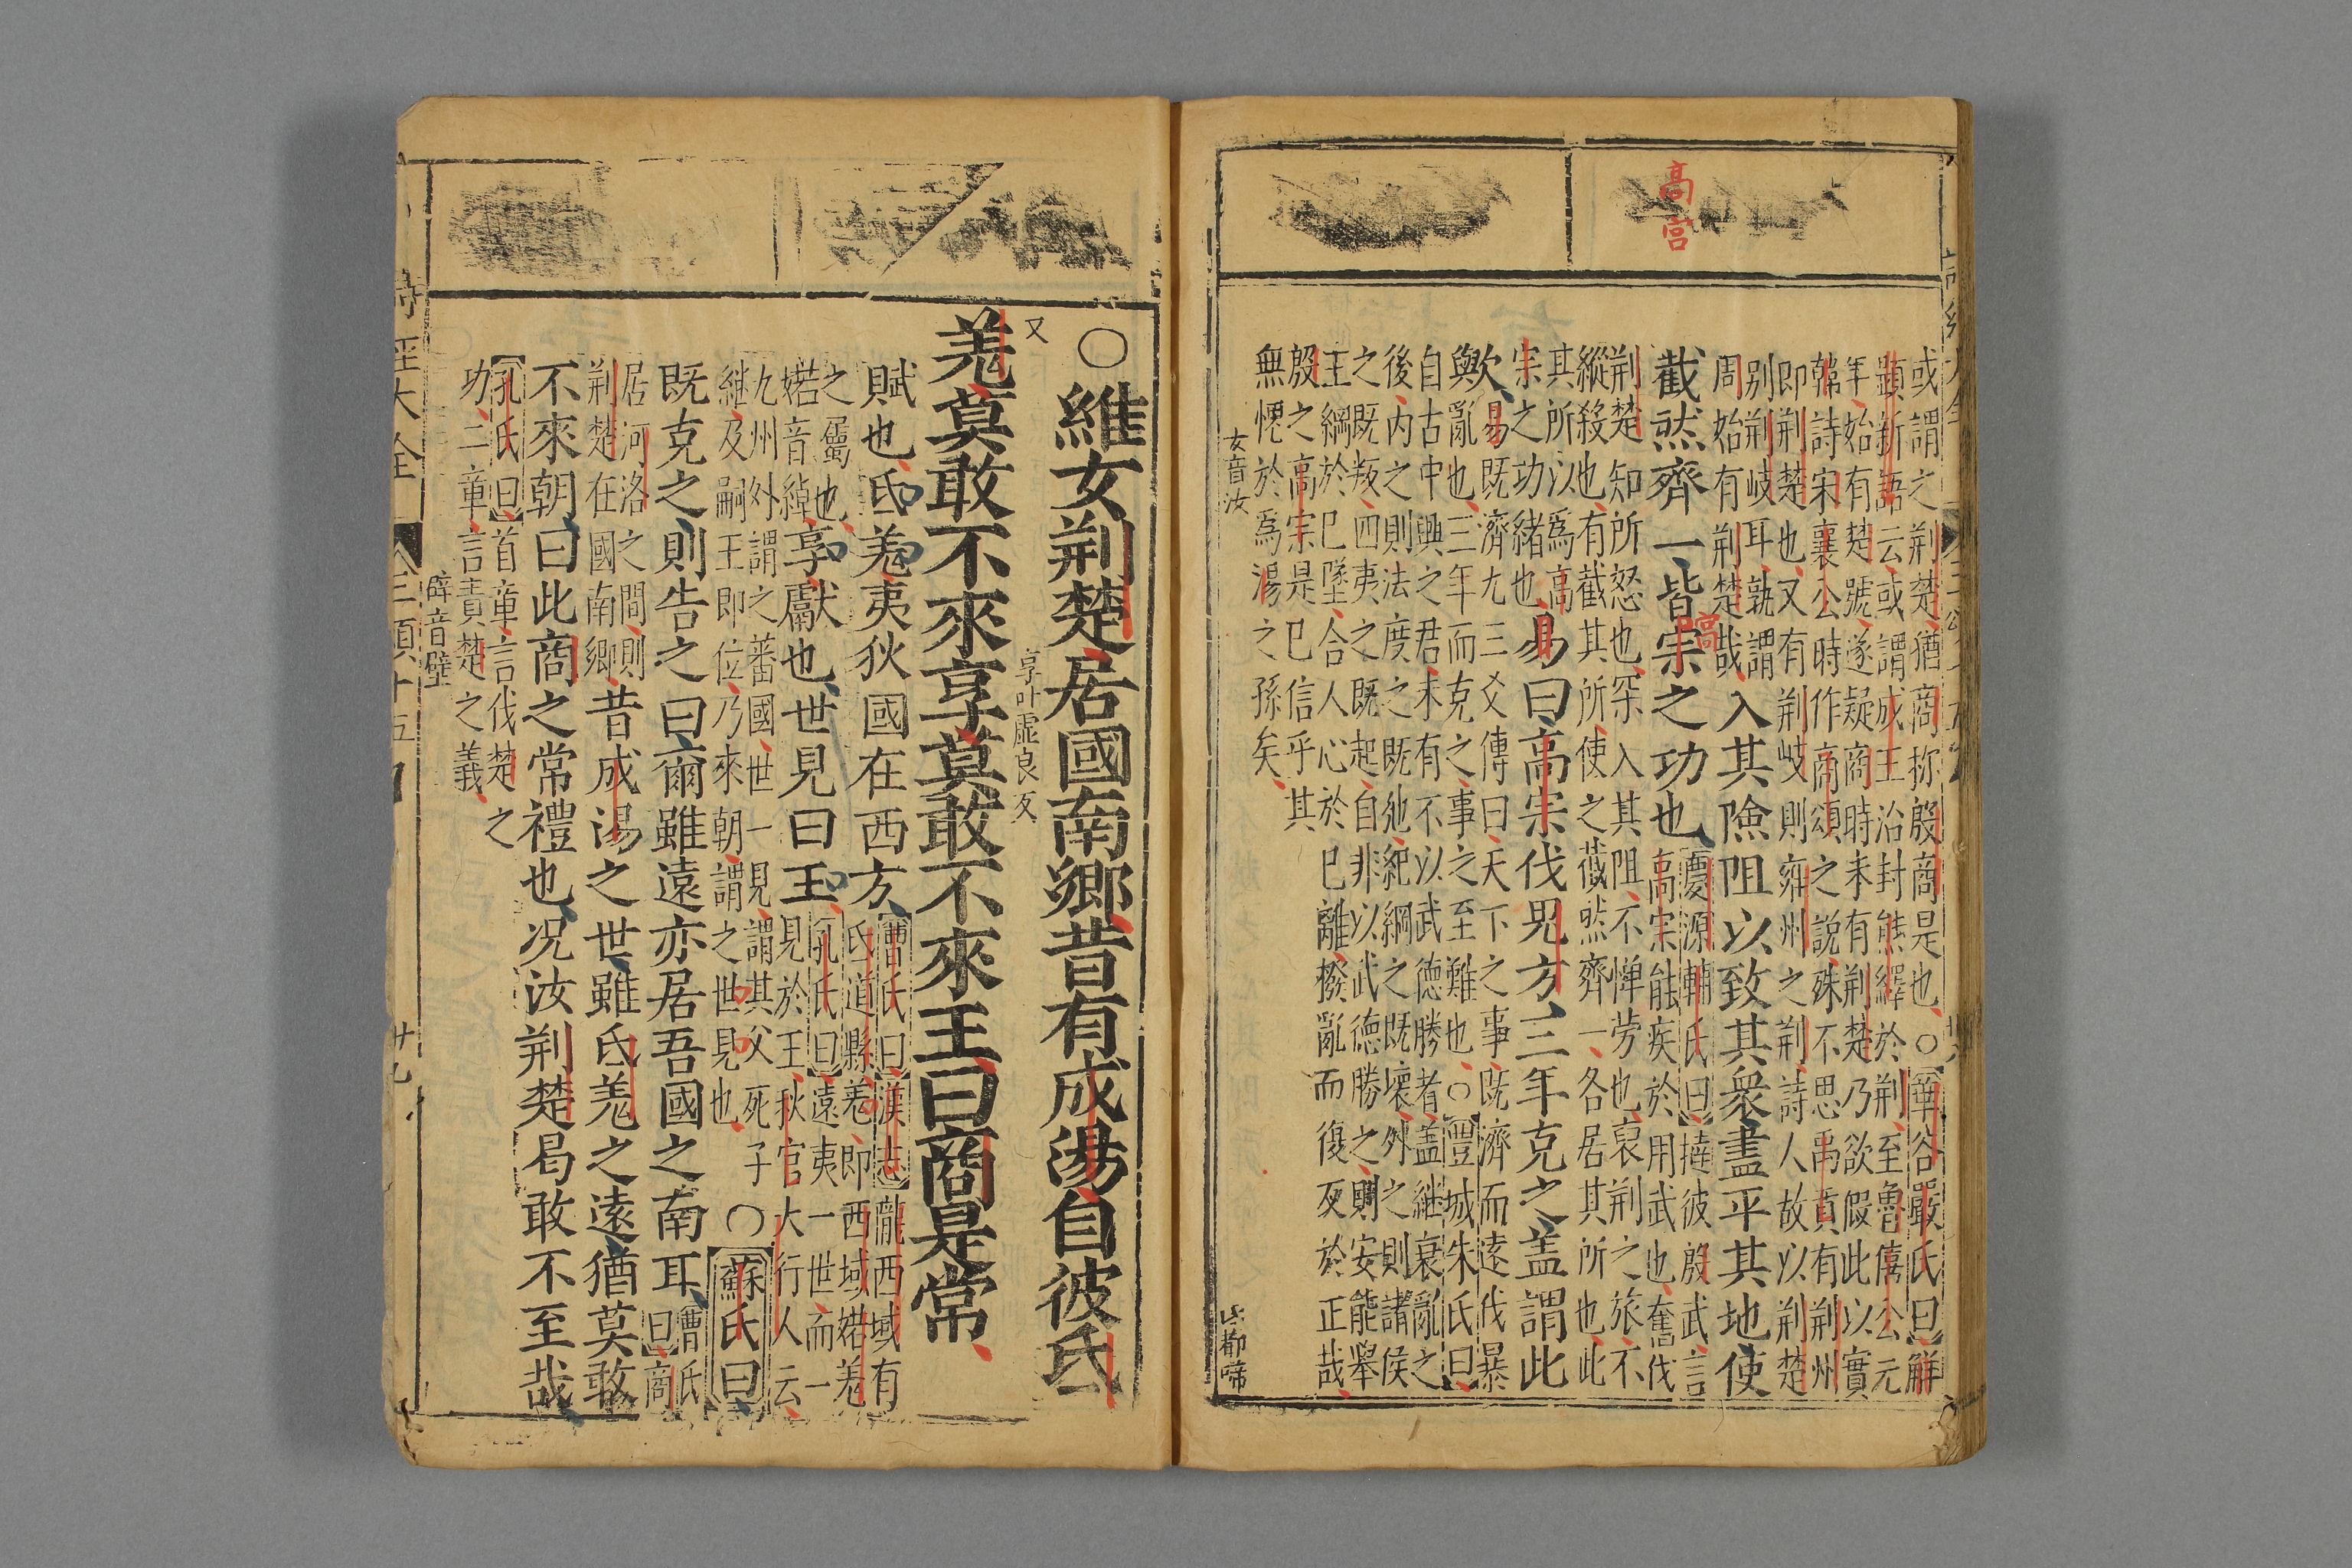 高宮
或謂之荆楚猶商称殷商是也○華谷嚴氏曰觧
顥新語云或謂成王治封熊繹於荆至魯僖公元
年始有楚號遂疑商時未有荆楚乃欲假此以實
韓詩宋襄公時作商頌之說殊不思禹貢有荆州
即荆楚也又有荆岐則雍州之荆詩人故以荆楚
别荆岐耳孰謂
周始有荆楚哉
入其險阻以致其衆盡平其地使
截然齊一皆宗之功也
高
慶源輔氏曰撻彼殷武言
高宗能疾於用武也奮伐
荆楚知所怒也罙入其阻不憚劳也裒荆之旅不
縱殺也有截其所使之截然齊一各居其所也此
其所以爲高
宗之功緒也
易曰高宗伐鬼方三年克之盖謂此
欤
易既濟九三爻傳曰天下之事既濟而遠伐暴
與亂也三年而克之事之至難也○豐城朱氏曰
自古中興之君未有不以武德勝者盖継衰亂之
後内之則法度之既弛紀綱之既壞外之則諸侯
之既叛四夷之既起自非以武德勝之則安能舉
王綱於巳墜合人心於巳離撥亂而復反於正哉
殷之高宗是巳信乎其
無愧於爲湯之孫矣
女音汝
氐都啼
○維女荆楚居國南鄉昔有成湯自彼氐
又
享叶虛良反
羗莫敢不來享莫敢不來王曰商是常
賦也氐羗夷狄國在西方
曹氏曰漢志隴西域有
氐道縣羗即西域婼羗
之屬也
婼音綽
享獻也世見曰王
孔氏曰遠夷一世而一
見於王秋官大行人云
九州外謂之蕃國世一見謂其父死子
継及嗣王即位乃來朝謂之世見也
○蘇氏曰
既克之則告之曰爾雖遠亦居吾國之南耳
曹氏
曰商
居河洛之間則
荆楚在國南鄉
昔成湯之世雖氐羗之遠猶莫敢
不來朝曰此商之常禮也况汝荆楚曷敢不至哉
孔氏曰首章言伐楚之
功二章言責楚之義
辟音璧
詩經大全
三頌十五
廿九